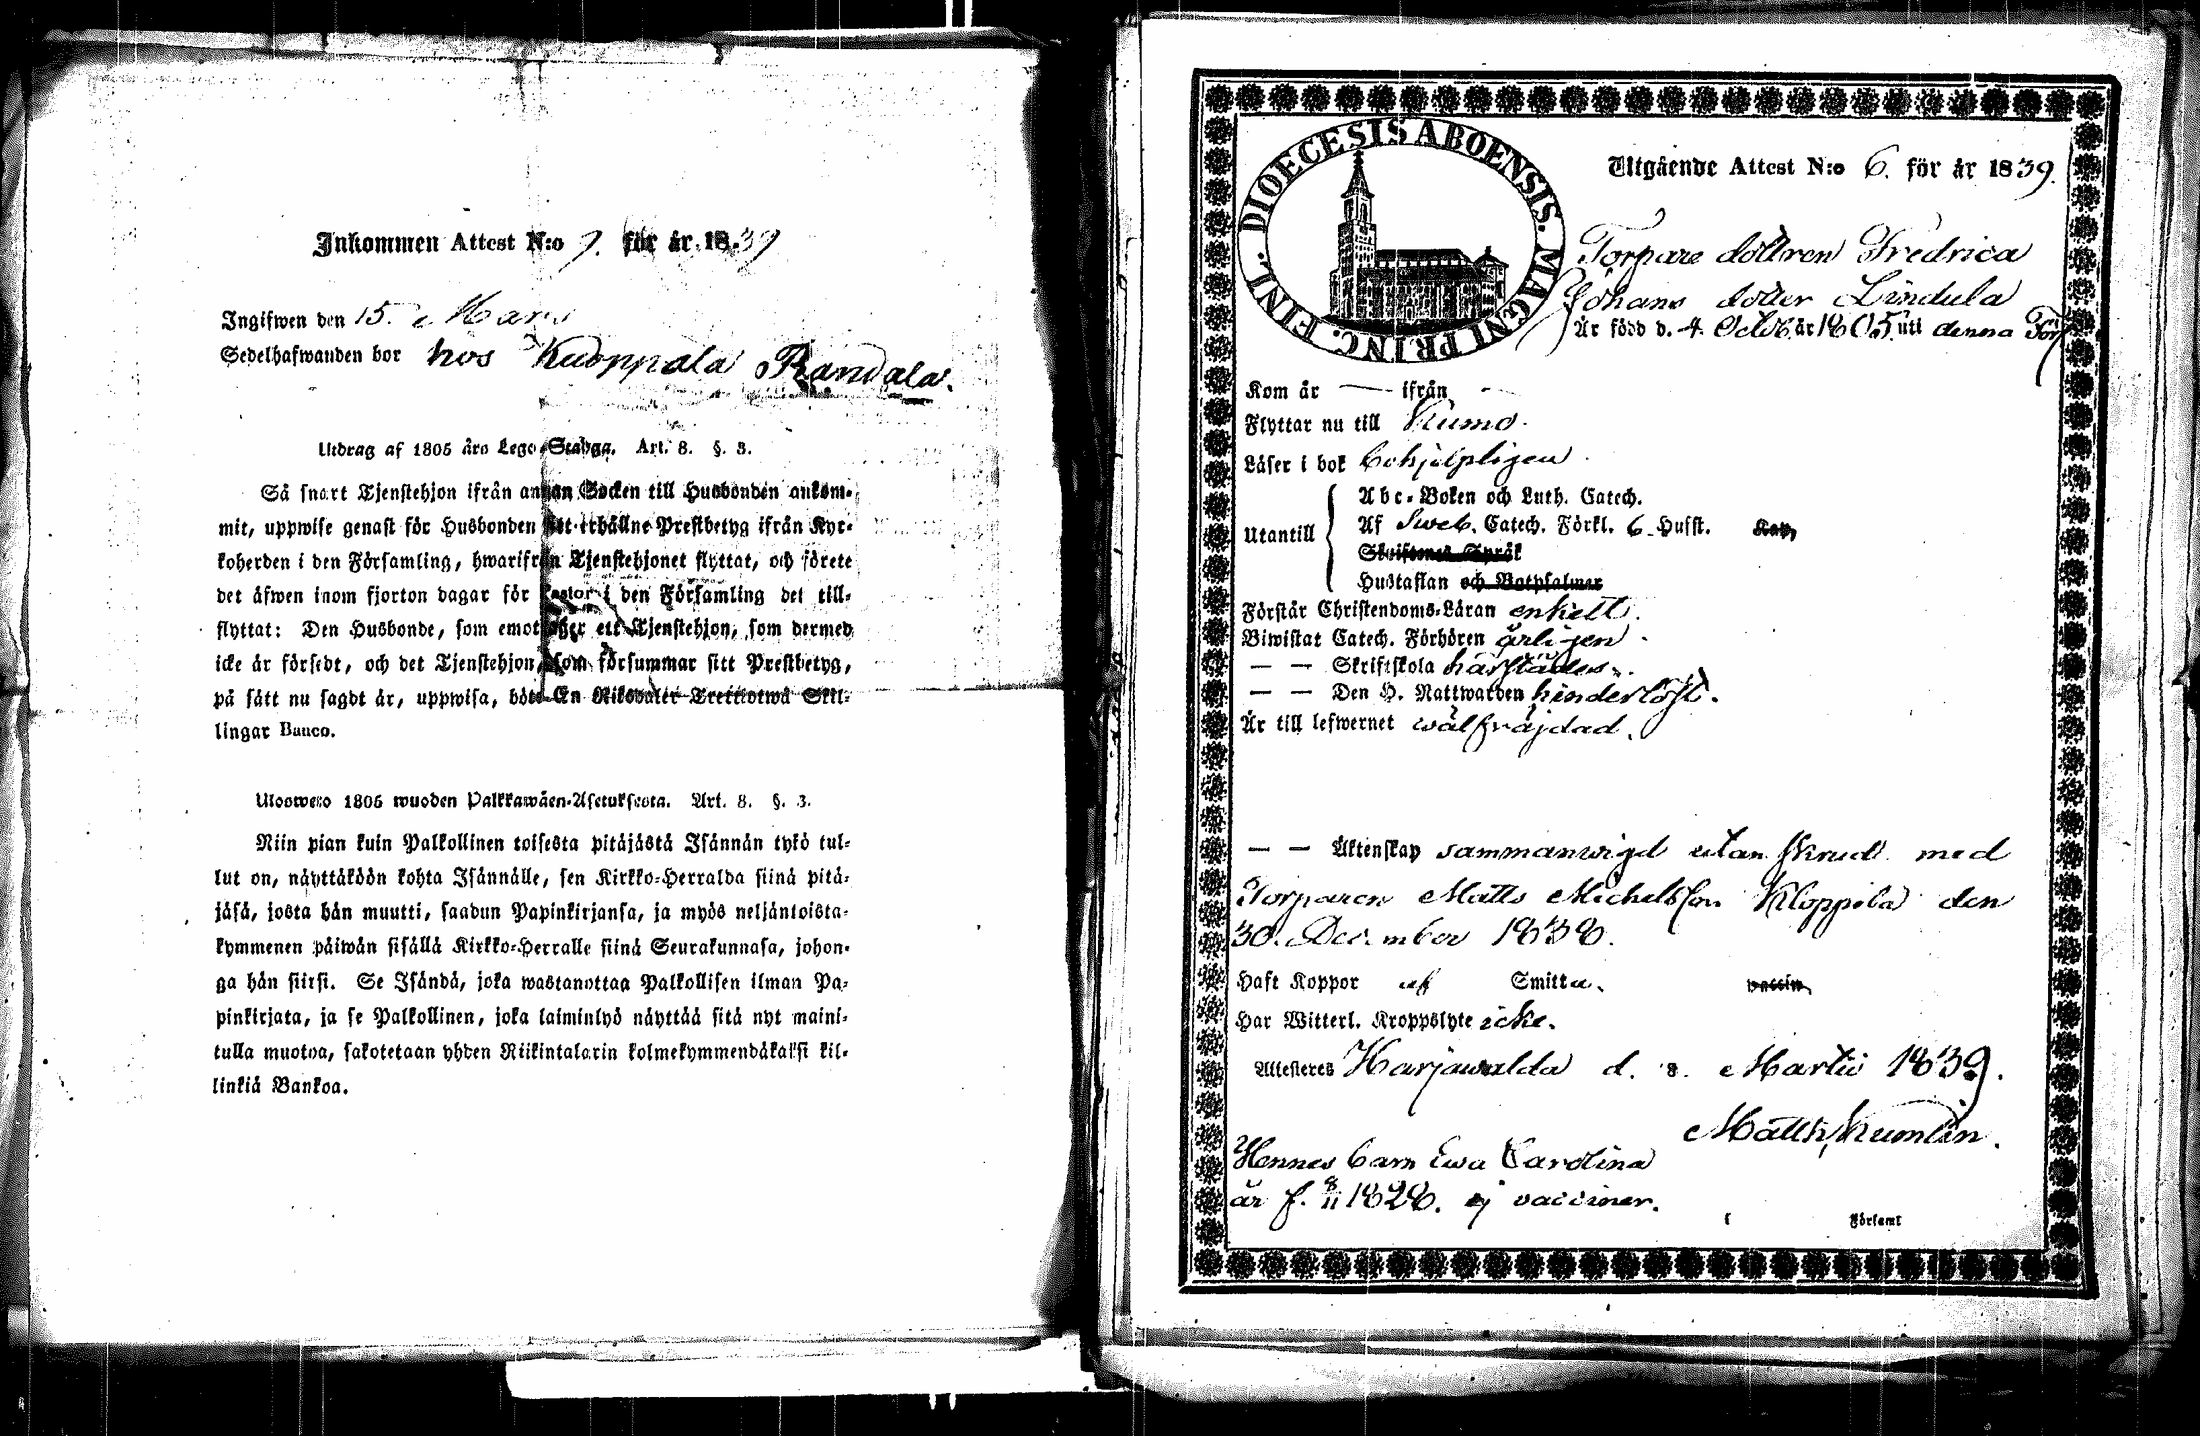 Inkommen Attest N:o 9. för år 1839
Ingifwen den 15. Mars
Sedelhafwanden bor hos Kuoppala Randala.
Utdrag af 1805 års Lego-Stadga. Art. 8. §. 3.
Så snart Tjenstehjon ifrån annan Socken till Husbonden ankom-
mit, uppwise genast för Husbonden sitt erhållne Prestbetyg ifrån Kyr-
koherden i den Församling, hwarifrån Tjenstehjonet flyttat, och förete
det äfwen inom fjorton dagar för Pastor i den Församling det till-
flyttat: Den Husbonde, som emottager ett Tjenstehjon, som dermed
icke är försedt, och det Tjenstehjon, som försummar sitt Prestbetyg,
på sätt nu sagdt är, uppwisa, böte En Riksdaler Trettiotwå Skil-
lingar Banco.
Ulosweto 1805 wuoden Palkkawäen-Asetuksesta. Art. 8. §. 3.
Niin pian kuin Palkollinen toisesta pitäjästä Isännän tykö tul-
lut on, näyttäköön kohta Isännälle, sen Kirkko-Herralda siinä pitä-
jäsä, josta hän muutti, saadun Papinkirjansa, ja myös neljäntoista-
kymmenen päiwän sisällä Kirkko-Herralle siinä Seurakunnasa, johon-
ga hän siirsi. Se Isändä, joka wastanottaa Palkollisen ilman Pa-
pinkirjata, ja se Palkollinen, joka laiminlyö näyttää sitä nyt maini-
tulla muotoa, sakotetaan yhden Riikintalarin kolmekymmendäkaksi kil-
linkiä Bankoa.
DIOECESIS ABOENSIS. MAGNI PRINC. FINL.
Utgående Attest N:o 6. för år 1839.
Torpare dottren Fredrica
Johans dotter Lindula
Är född d. 4. Octob. år 1805. uti denna Förs
Kom år — ifrån —
Flyttar nu till Kumo.
Läser i bok behjelpligen.
Utantill
Abc-Boken och Luth. Catech.
Af Sweb. Catech. Förkl. 6. Hufst. Kap.
Skriftenes Språk
Hustaflan och Botpsalmer
Förstår Christendoms-Läran enkelt.
Biwistat Catech. Förhören årligen.
— — Skriftskola härstädes.
— — Den H. Nattwarden hinderlöst.
Är till lefwernet wälfräjdad.
— — Äktenskap sammanwigd utan skrud med
Torparen Matts Michelsson Kloppila den
30. December 1838.
Haft Koppor af Smitta. vaccin.
Har Witterl. Kroppslyte icke.
Attesteres Harjawalda d. 8. Martii 1839.
Matth. Kumlin.
Hennes barn Ewa Carolina
är f. 8/11 1828. ej vacciner.
i Församl